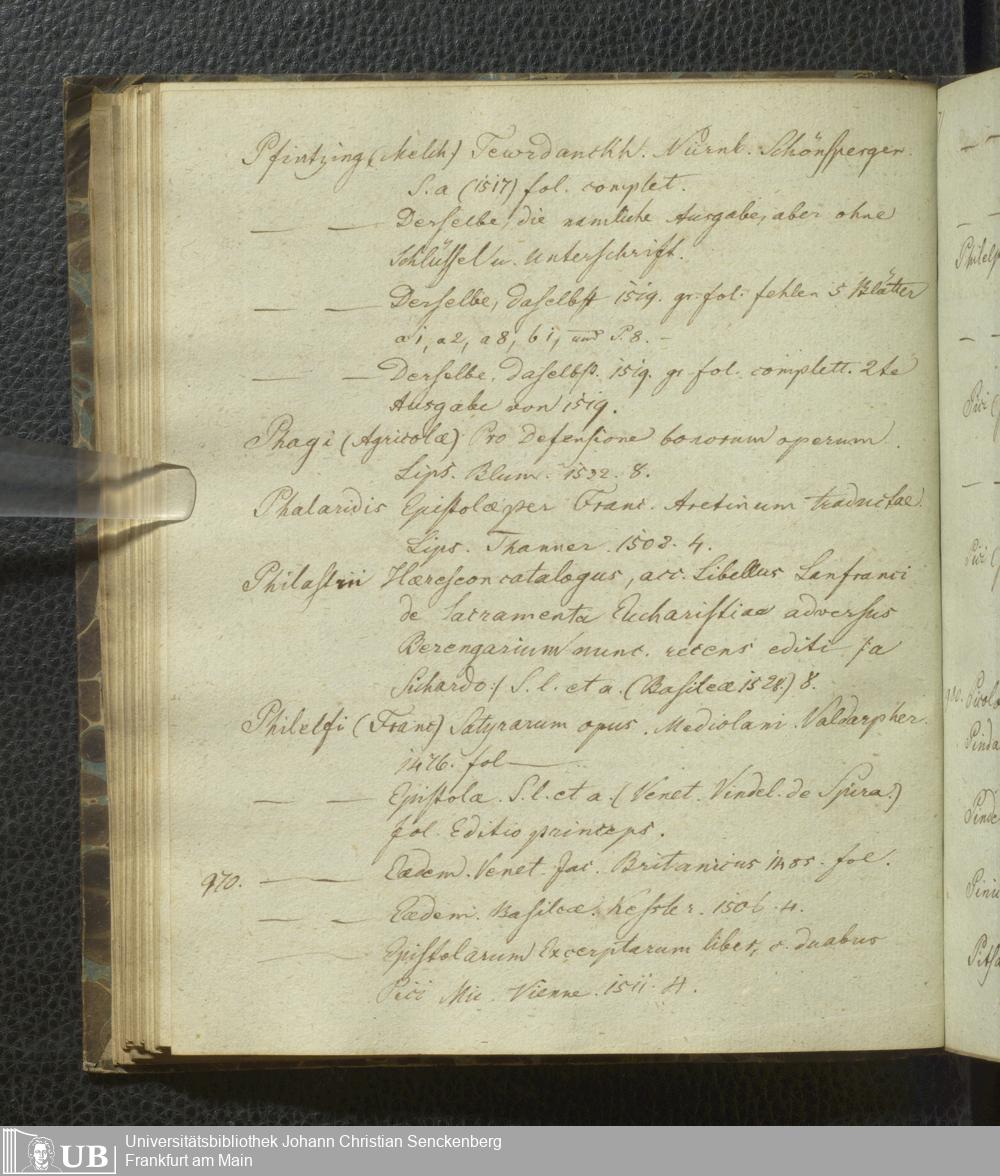 Pfintzing (Melch) Tewrdanckh. Nürnb. Schönsperger.
S. a (1517) fol. complet.
— — Derselbe, die namliche Ausgabe, aber ohne
Schlüssel u. Unterschrift.
— — Derselbe, daselbst 1519. gr. fol. fehlen 5 Blätter
a 1, a 2, a 8, b 1, und P. 8. –
— — Derselbe. daselbst. 1519. gr fol. complett. 2te
Ausgabe von 1519.
Phagi (Agricolæ) Pro defensione bonorum operum.
Lips. Blum. 1522. 8.
Phalaridis Epistolæ per Franc. Aretinum traductae.
Lips. Thanner. 1502. 4.
Philastrii Hæreseon catalogus, acc. Libellus Lanfranci
de Sacramento Eucharistiae adversus
Berengarium nunc. recens editi /a
Sichardo:/ S. l. et a. (Basileæ 1528.) 8.
Philelfi (Franc) Satyrarum opus. Mediolani. Valdarpher.
1476. fol —
— — Epistola. S. l. et a. (Venet. Vindel. de Spira.)
fol. Editio princeps.
970. — — Eædem. Venet. Jac. Britanicus fol.
— — Eædem. Basileæ. Kessler. 1506. 4.
— — Epistolarum Excerptarum liber, c. duabus
Pici Mir. Vienne. 1511. 4.
Philelp
Pici (
Pici (
980. Picolo
Pinda
Pinde
Pinic
Pitha
UB
Universitätsbibliothek Johann Christian Senckenberg
Frankfurt am Main